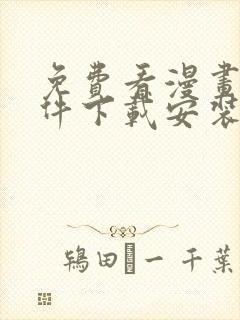 免費看漫畫
件下載安裝
鴇田 一 千葉